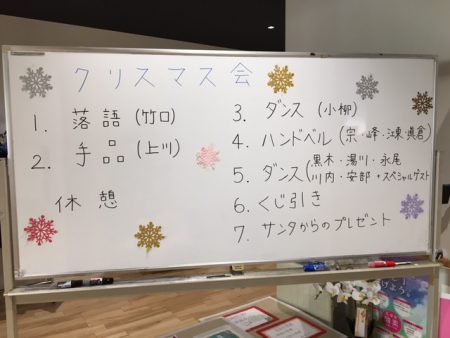 クリスマス会
1. 落語 (竹口)
2. 手品 (上川)
休憩
3. ダンス (小柳)
4. ハンドベル (宗・峰・凍・眞倉)
5. ダンス (黒木・湯川・永尾
川内・安部 +スペシャルゲスト
6. くじ引き
7. サンタからのプレゼント